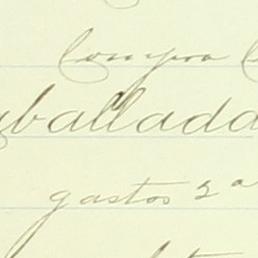 Compra
yballadd
gastos 2ª